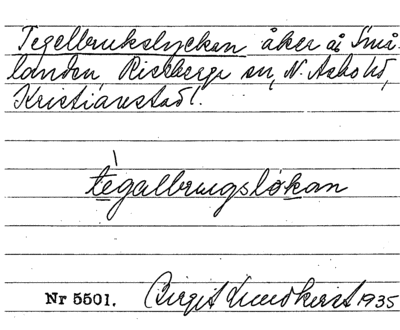 Tegelbrukslyckan åker å Små-
landen, Riseberga sn, N. Åsbo hd,
Kristianstad l.
tègalbrugslökan
Nr 5501. Birgit Lundkvist 1935